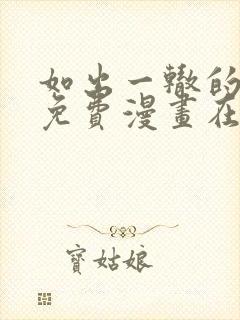 如出一轍的
免費漫畫在
寶姑娘